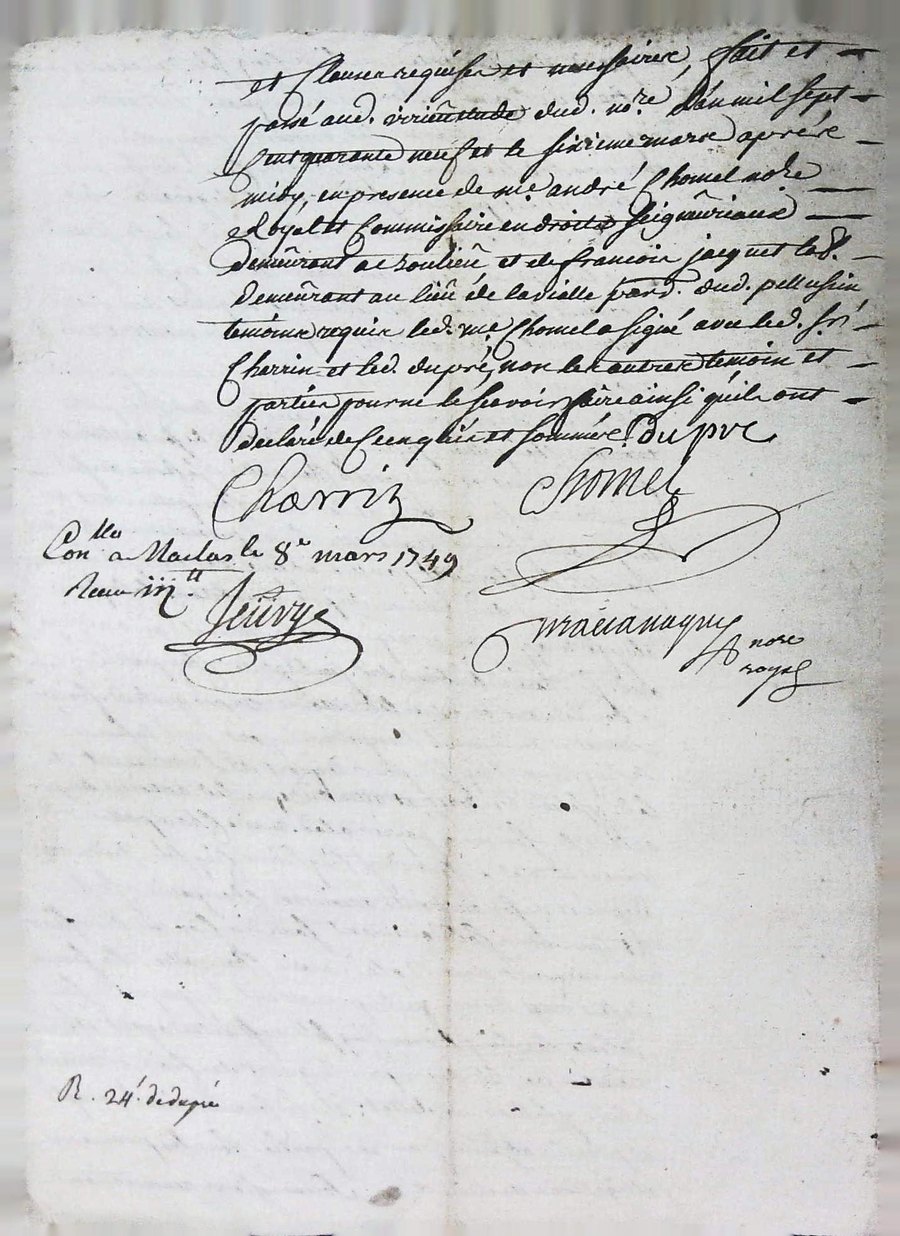 et Clauses requises et necessaires, fait et
passé aud. virieu étude dud. nore. L'an mil sept
Cent quarante neuf et le sixieme mars aprés
midy, en presence de me. andré Chomel nore
Royal et Commissaire en droits seigneuriaux
demeurant a et de francois jacquet lab.
demeurant au lieu de lavialle parr. dud. pellussin
temoins requis led. me. Chomel a signé avec led. sr.
Cherrin et led. dupré, non les autres temoin et
parties pour ne le scavoir faire ainsi qu'ils ont
declaré de Ce enquis et sommés. Dupre
Charrin Chomel
Conlle a Maclas le 8e mars 1749
Receu
nore
royal
R. 24s. de dupré